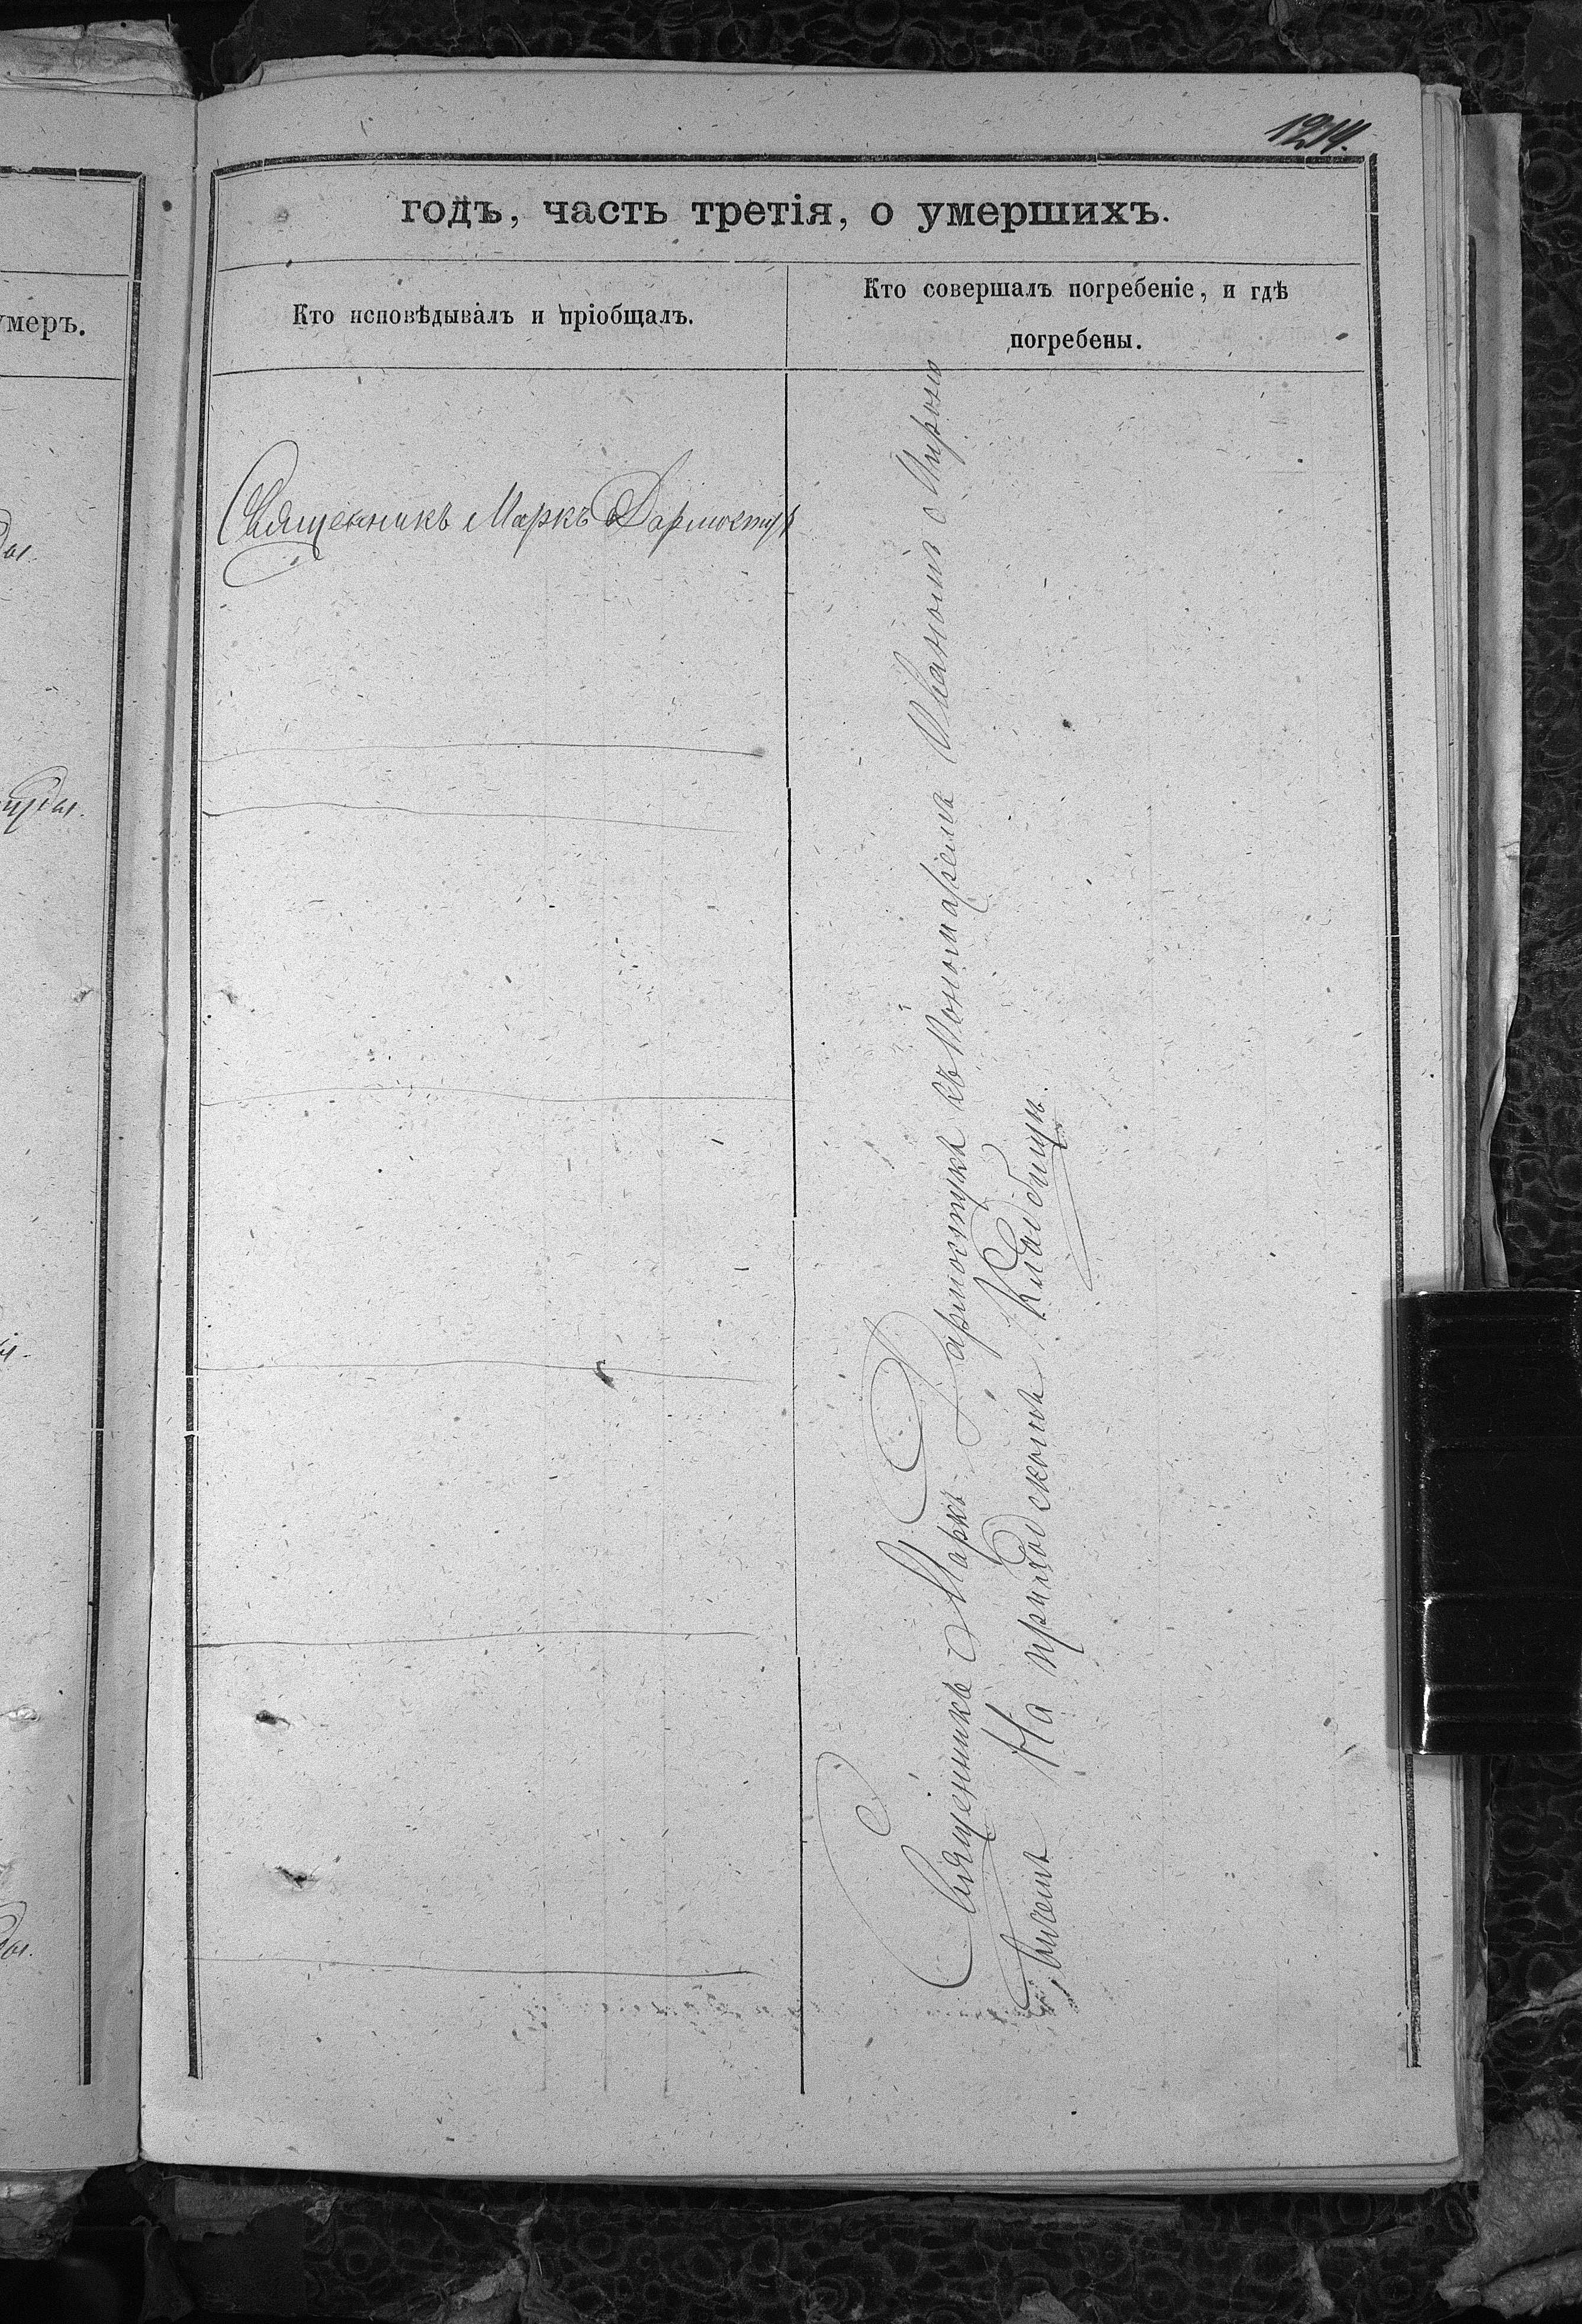 1214.
годъ, часть третія, о умершихъ.
умеръ.
Кто исповѣдывалъ и пріобщалъ.
Кто совершалъ погребеніе, и гдѣ
погребены.
Священникъ Маркъ Дармостукъ
Священникъ Маркъ Дармостукъ съ Пономаремъ Иваномъ
На приходскомъ Кладбищѣ.